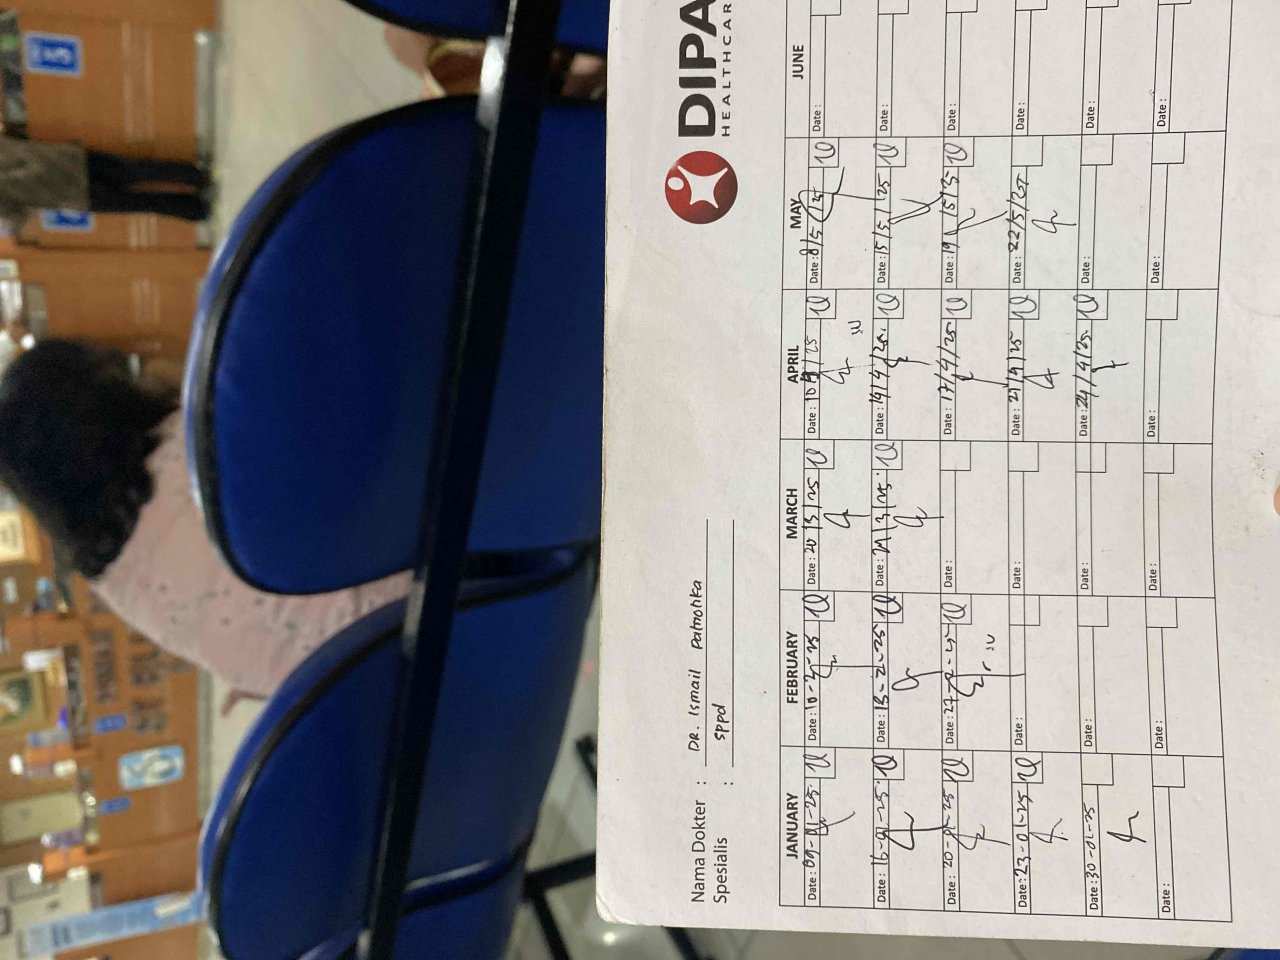 DIPA
HEALTHCAR
Nama Dokter : DR. Ismail Patnohka
Spesialis : sppd
JANUARY FEBRUARY MARCH APRIL MAY JUNE
Date: 09-01-25 Date: 10-2-25 Date: 20/3/25 Date: 10/4/25 Date: 8/5/25 Date:
Date: 16-01-25 Date: 13-2-25 Date: 24/3/25 Date: 14/4/25 Date: 15/5/25 Date:
Date: 20-01-25 Date: 27-2-25 Date: Date: 17/4/25 Date: 19 Date:
Date: 23-01-25 Date: Date: Date: 21/4/25 Date: 22/5/25 Date:
Date: 30-01-25 Date: Date: Date: 24/4/25 Date: Date:
Date: Date: Date: Date: Date: Date: